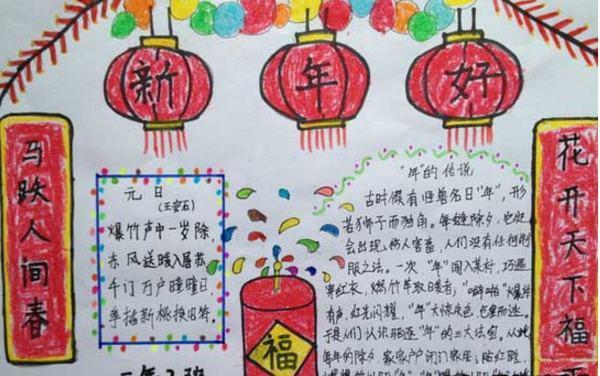 新年好
马跃人间春
花开天下福
元日
(王安石)
爆竹声中一岁除,
东风送暖入屠苏
千门万户曈曈日
总把新桃换旧符。
福
"年"的传说
古时候有怪兽名曰"年",形
若狮子而独角。每逢除夕,也必
会出现,伤人害畜,人们没有任何制
服之法。一次,"年"闯入某村,巧遇
穿红衣,燃竹竿取暖者,"噼啪"爆炸
有声,红光闪耀,"年"大惊失色,
于是人们认识驱逐"年"的三大法宝。从此
每年的除夕 家家户户闭门家居,贴红联